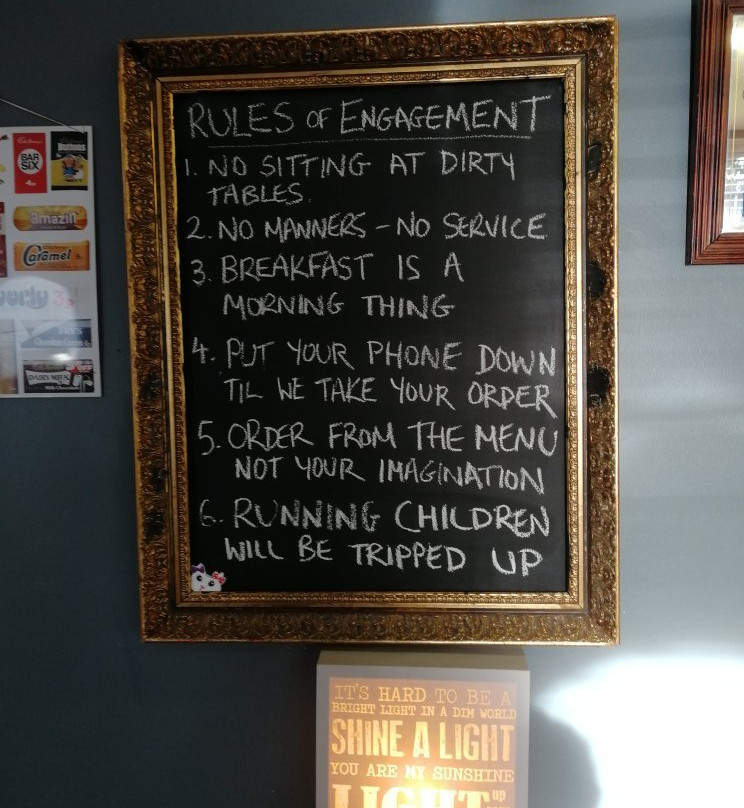 RULES OF ENGAGEMENT
1. NO SITTING AT DIRTY
TABLES.
2. NO MANNERS - NO SERVICE
3. BREAKFAST IS A
MORNING THING
4. PUT YOUR PHONE DOWN
TIL WE TAKE YOUR ORDER
5. ORDER FROM THE MENU
NOT YOUR IMAGINATION
6. RUNNING CHILDREN
WILL BE TRIPPED UP
Cadbury's
BAR
SIX
4p
amazin'
Caramel
3p
FRY'S
IT'S HARD TO BE A
BRIGHT LIGHT IN A DIM WORLD
SHINE A LIGHT
YOU ARE MY SUNSHINE
LIGHT up